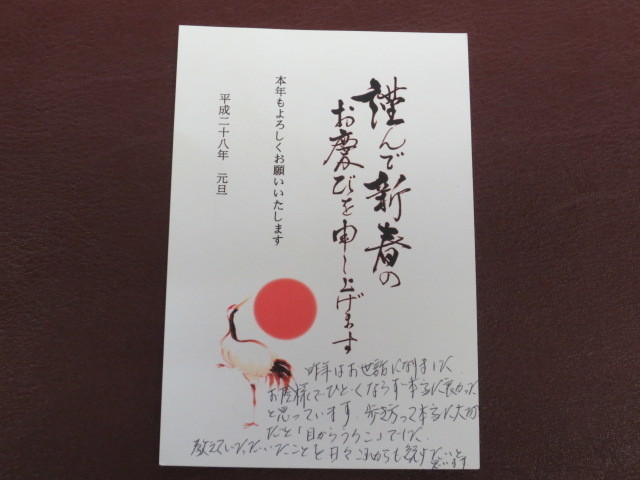 謹んで新春の
お慶びを申し上げます
本年もよろしくお願いいたします
平成二十八年 元旦
昨年はお世話になりました
お陰様でひどくならず本当に良かった
と思っています。歩き方って本当に大切
だと「目からうろこ」でした。
教えていただいたことを日々これからも続けたいと
思います